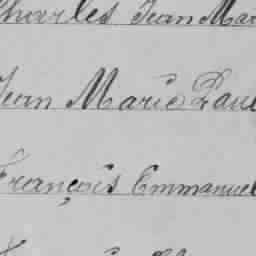 Charles Jean Mar
Jean Marie Paul
François Emmanuel